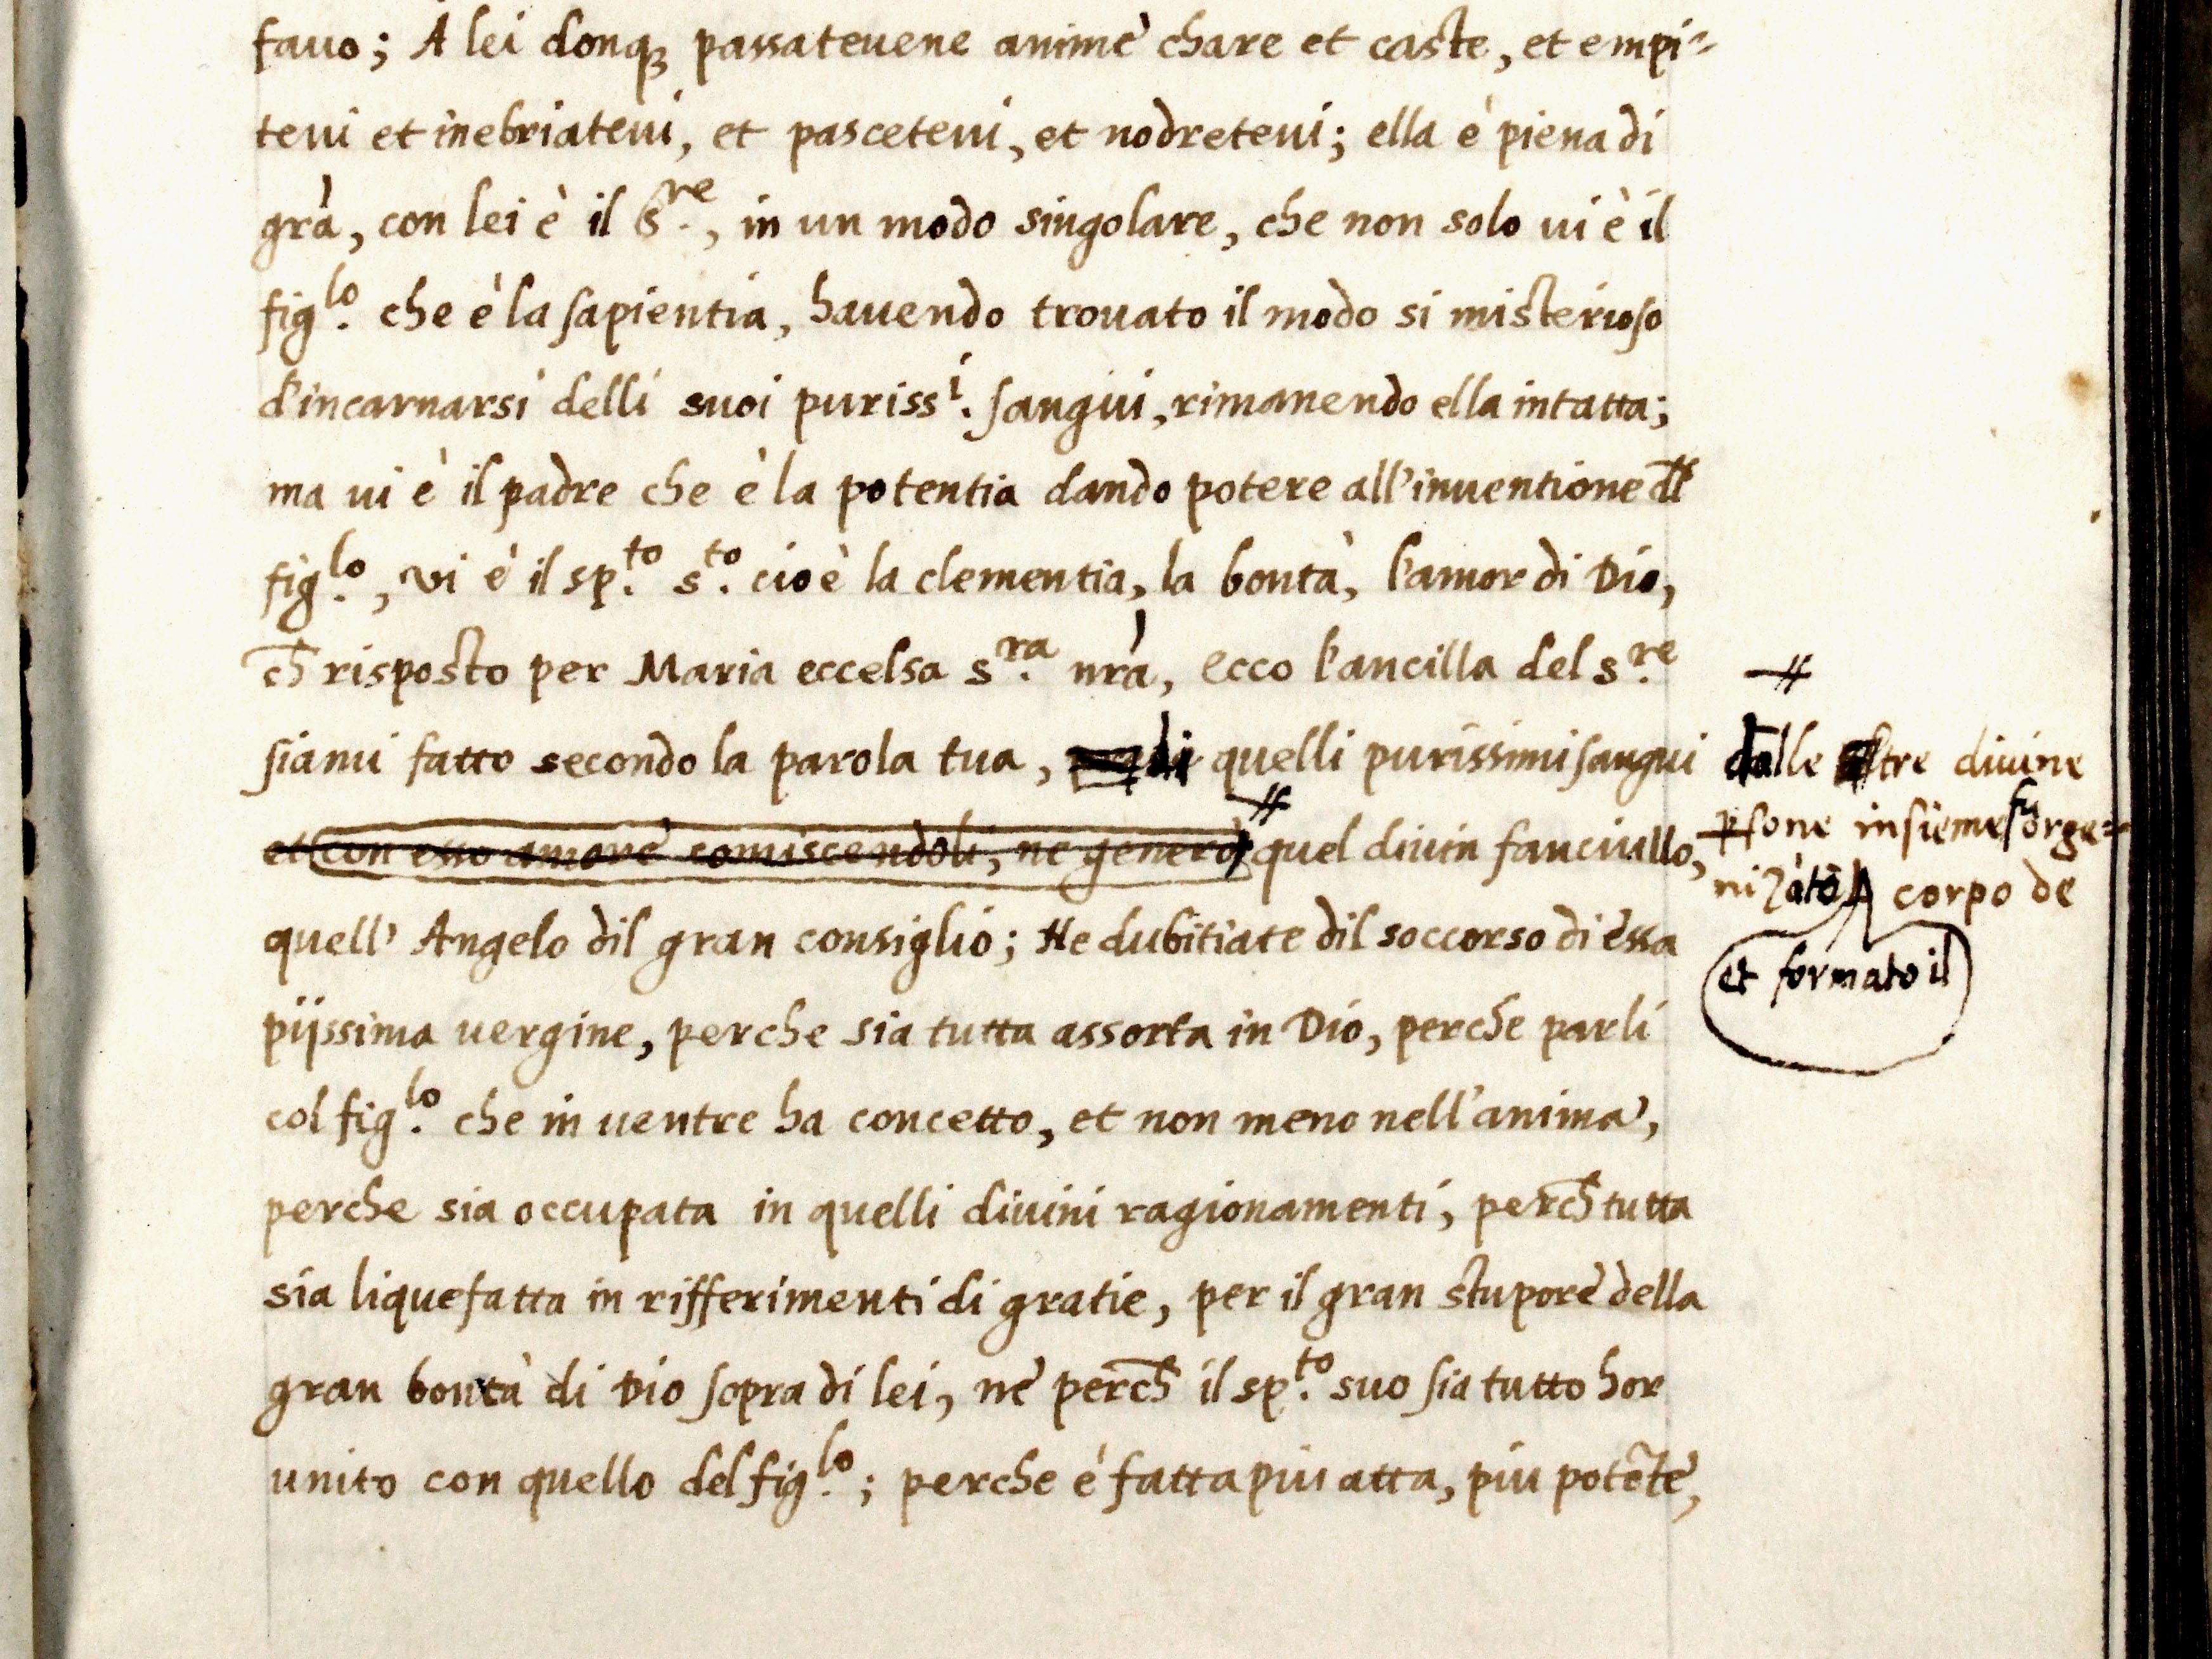 fauo; A lei donq3 passateuene anime chare et caste, et empi=
teui et inebriateui, et pasceteui, et nodreteui; ella è piena di
grà, con lei è il S.re, in un modo singolare, che non solo ui è il
fig.lo che è la sapientia, hauendo trouato il modo si misterioso
d'incarnarsi delli suoi puriss.i sangui, rimanendo ella intatta;
ma ui è il padre che è la potentia dando potere all'inuentione dl
fig.lo, vi è il sp.to s.to cioè la clementia, la bontà, l'amor di Dio,
ch risposto per Maria eccelsa s.ra nrà, ecco l'ancilla del s.re
siami fatto secondo la parola tua, di quelli purissimi sangui
et con esso amore comiscendoli, ne generò quel diuin fanciullo,
quell' Angelo dil gran consiglio; Ne dubitiate dil soccorso di essa
pijssima uergine, perche sia tutta assorta in Dio, perche parli
col fig.lo che in uentre ha concetto, et non meno nell'anima,
perche sia occupata in quelli diuini ragionamenti, perch tutta
sia liquefatta in rifferimenti di gratie, per il gran stupore della
gran bontà di Dio sopra di lei, ne perch il sp.to suo sia tutto hor
unito con quello del fig.lo; perche è fatta piu atta, piu potēte,
dalle tre diuine
psone insieme fu orge=
nizato corpo de
et formato il